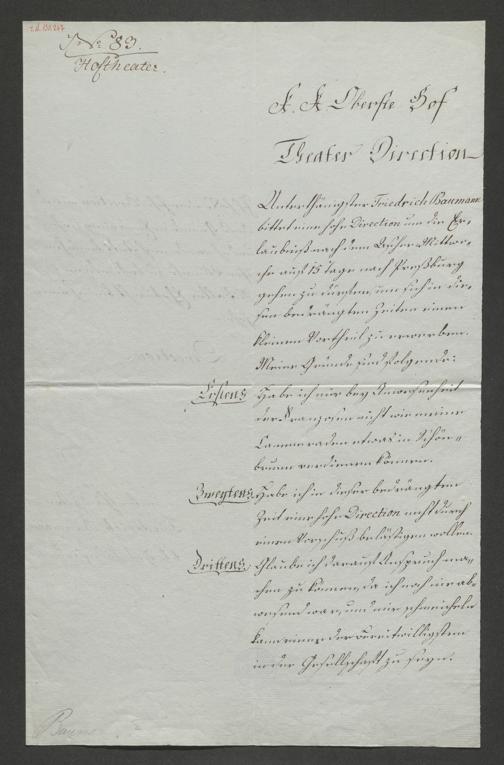 No 83.
Hoftheater.
K. K Oberste Hof
Theater Direction
Unterthänigster Friedrich Baumann
bittet eine hohe Direction um die Er-
laubniß nach dem Ascher-Mittwo-
che auf 15 Tage nach Preßburg
gehen zu dürfen, um sich in die-
sen bedrängten Zeiten einen
kleinen Vortheil zu erwerben.
Meine Gründe sind folgende:
Erstens Habe ich mir bey Anwesenheit
der Franzosen nicht wie meine
Cammeraden etwas in Schön-
brunn verdienen können.
Zweytens Habe ich in dieser bedrängten
Zeit eine hohe Direction nicht durch
einen Vorschuß belästigen wollen.
Drittens Glaube ich darauf Anspruch ma-
chen zu können, da ich noch nie ab-
wesend war, und mir schmeicheln
kann einer der Bereitwilligsten
in der Gesellschaft zu seyn.